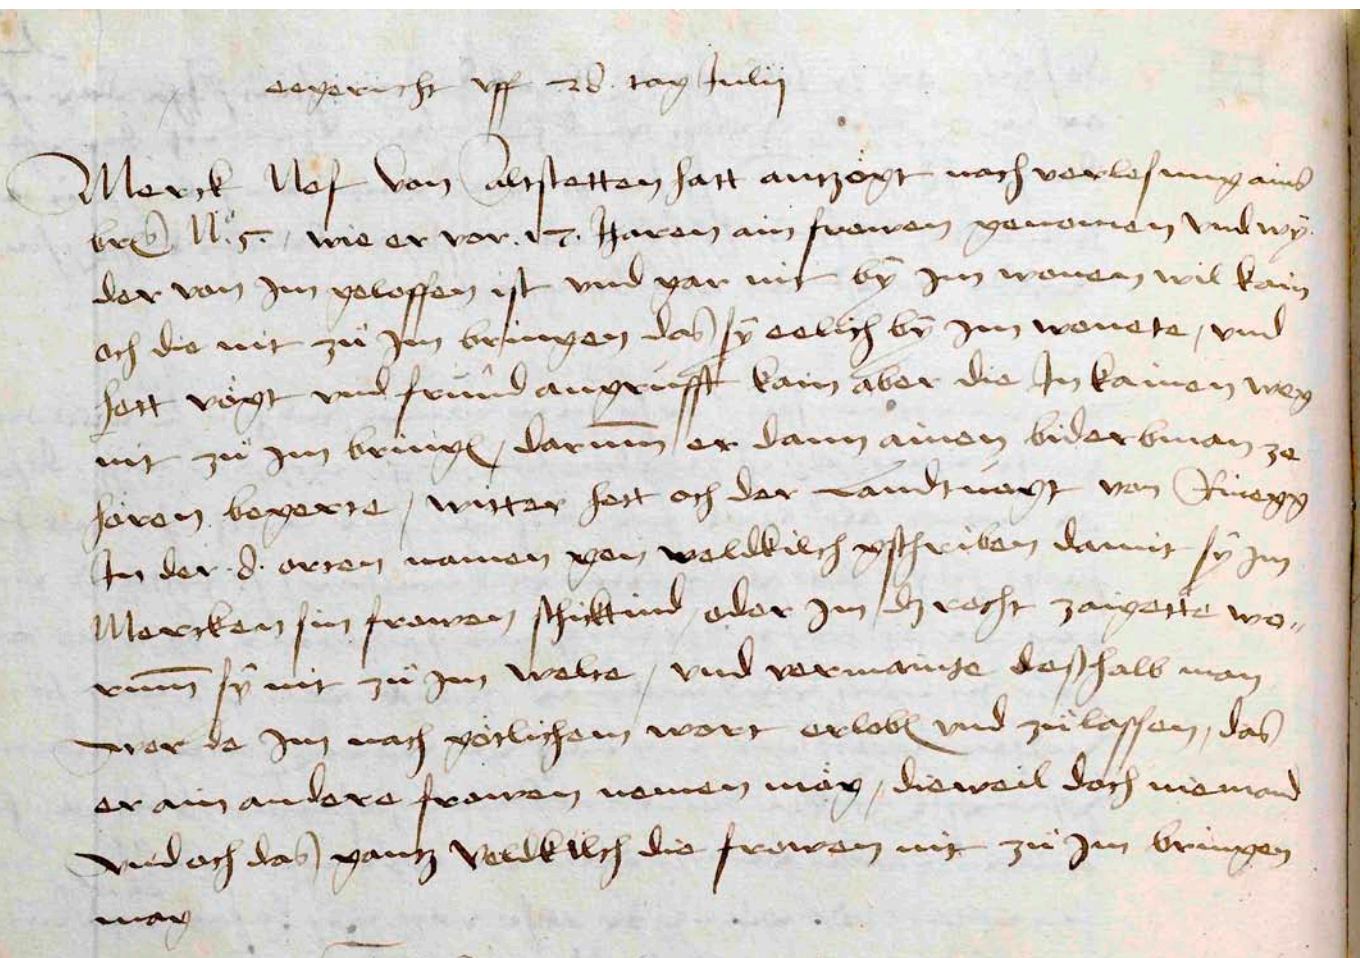 eegericht vff 28. tag Julij
Merck Nef von Altstetten hatt antzögt nach verlesung ains
brfs No. 5. / wie er vor .17. Jaren ain frowen genomen vnd wÿ
der von jm geloffen ist vnd gar nit bÿ jm wonen wil kain
och die nit zů jm bringen das sÿ eelich bÿ jm wonete / vnd
hett vögt vnd fründ angrüfft kain aber die Jn kainen weg
nit zů jm bringen / darum̄ er dann ainen biderbman ze
hören begerte / witter hett och der Landtuogt von Rinegg
Jn der .8. orten namen gen veldkilch gschriben damit sÿ jm
Mercken sin frowen schicktind / oder jm dz recht zaigette wo„
rum̄ sÿ nit zů jm welte / vnd vermainte deßhalb man
werde jm nach götlichem wort erloben vnd zůlassen / das
er ain andere frowen nemen mög / dieweil doch niemand
vnd och das gantz Veldkilch die frowen nit zů jm bringen
mag